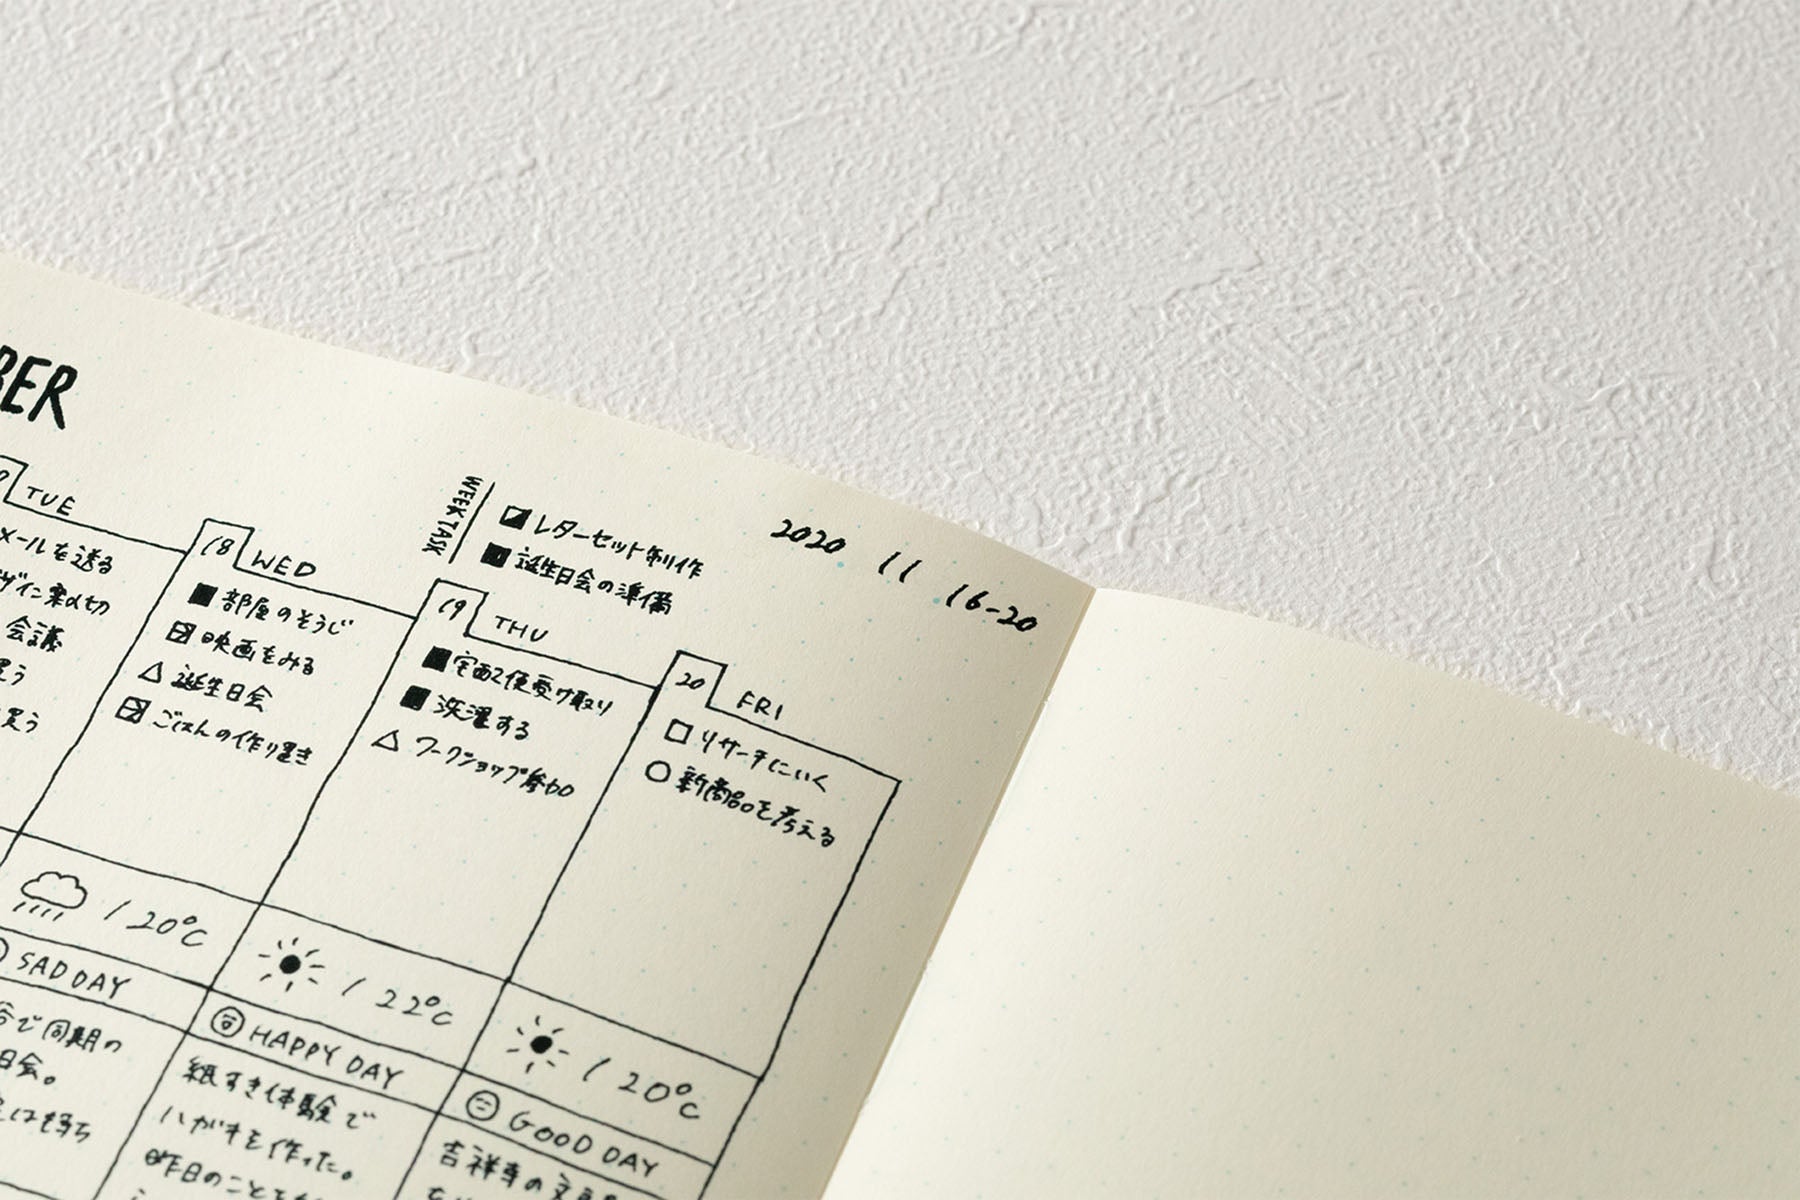 BER
WEEK TASK
レターセット制作
誕生日会の準備
2020 11 16-20
TUE
メールを送る
会議
買う
買う
18 WED
部屋のそうじ
映画をみる
誕生日会
ごはんの作り置き
19 THU
宅配便受け取り
洗濯する
ワークショップ参加
20 FRI
リサーチにいく
新商品を考える
/ 20°C
SAD DAY
で同期の
日会。
/ 22°C
HAPPY DAY
紙すき体験で
ハガキを作った。
昨日のこと
/ 20°C
GOOD DAY
吉祥寺の文